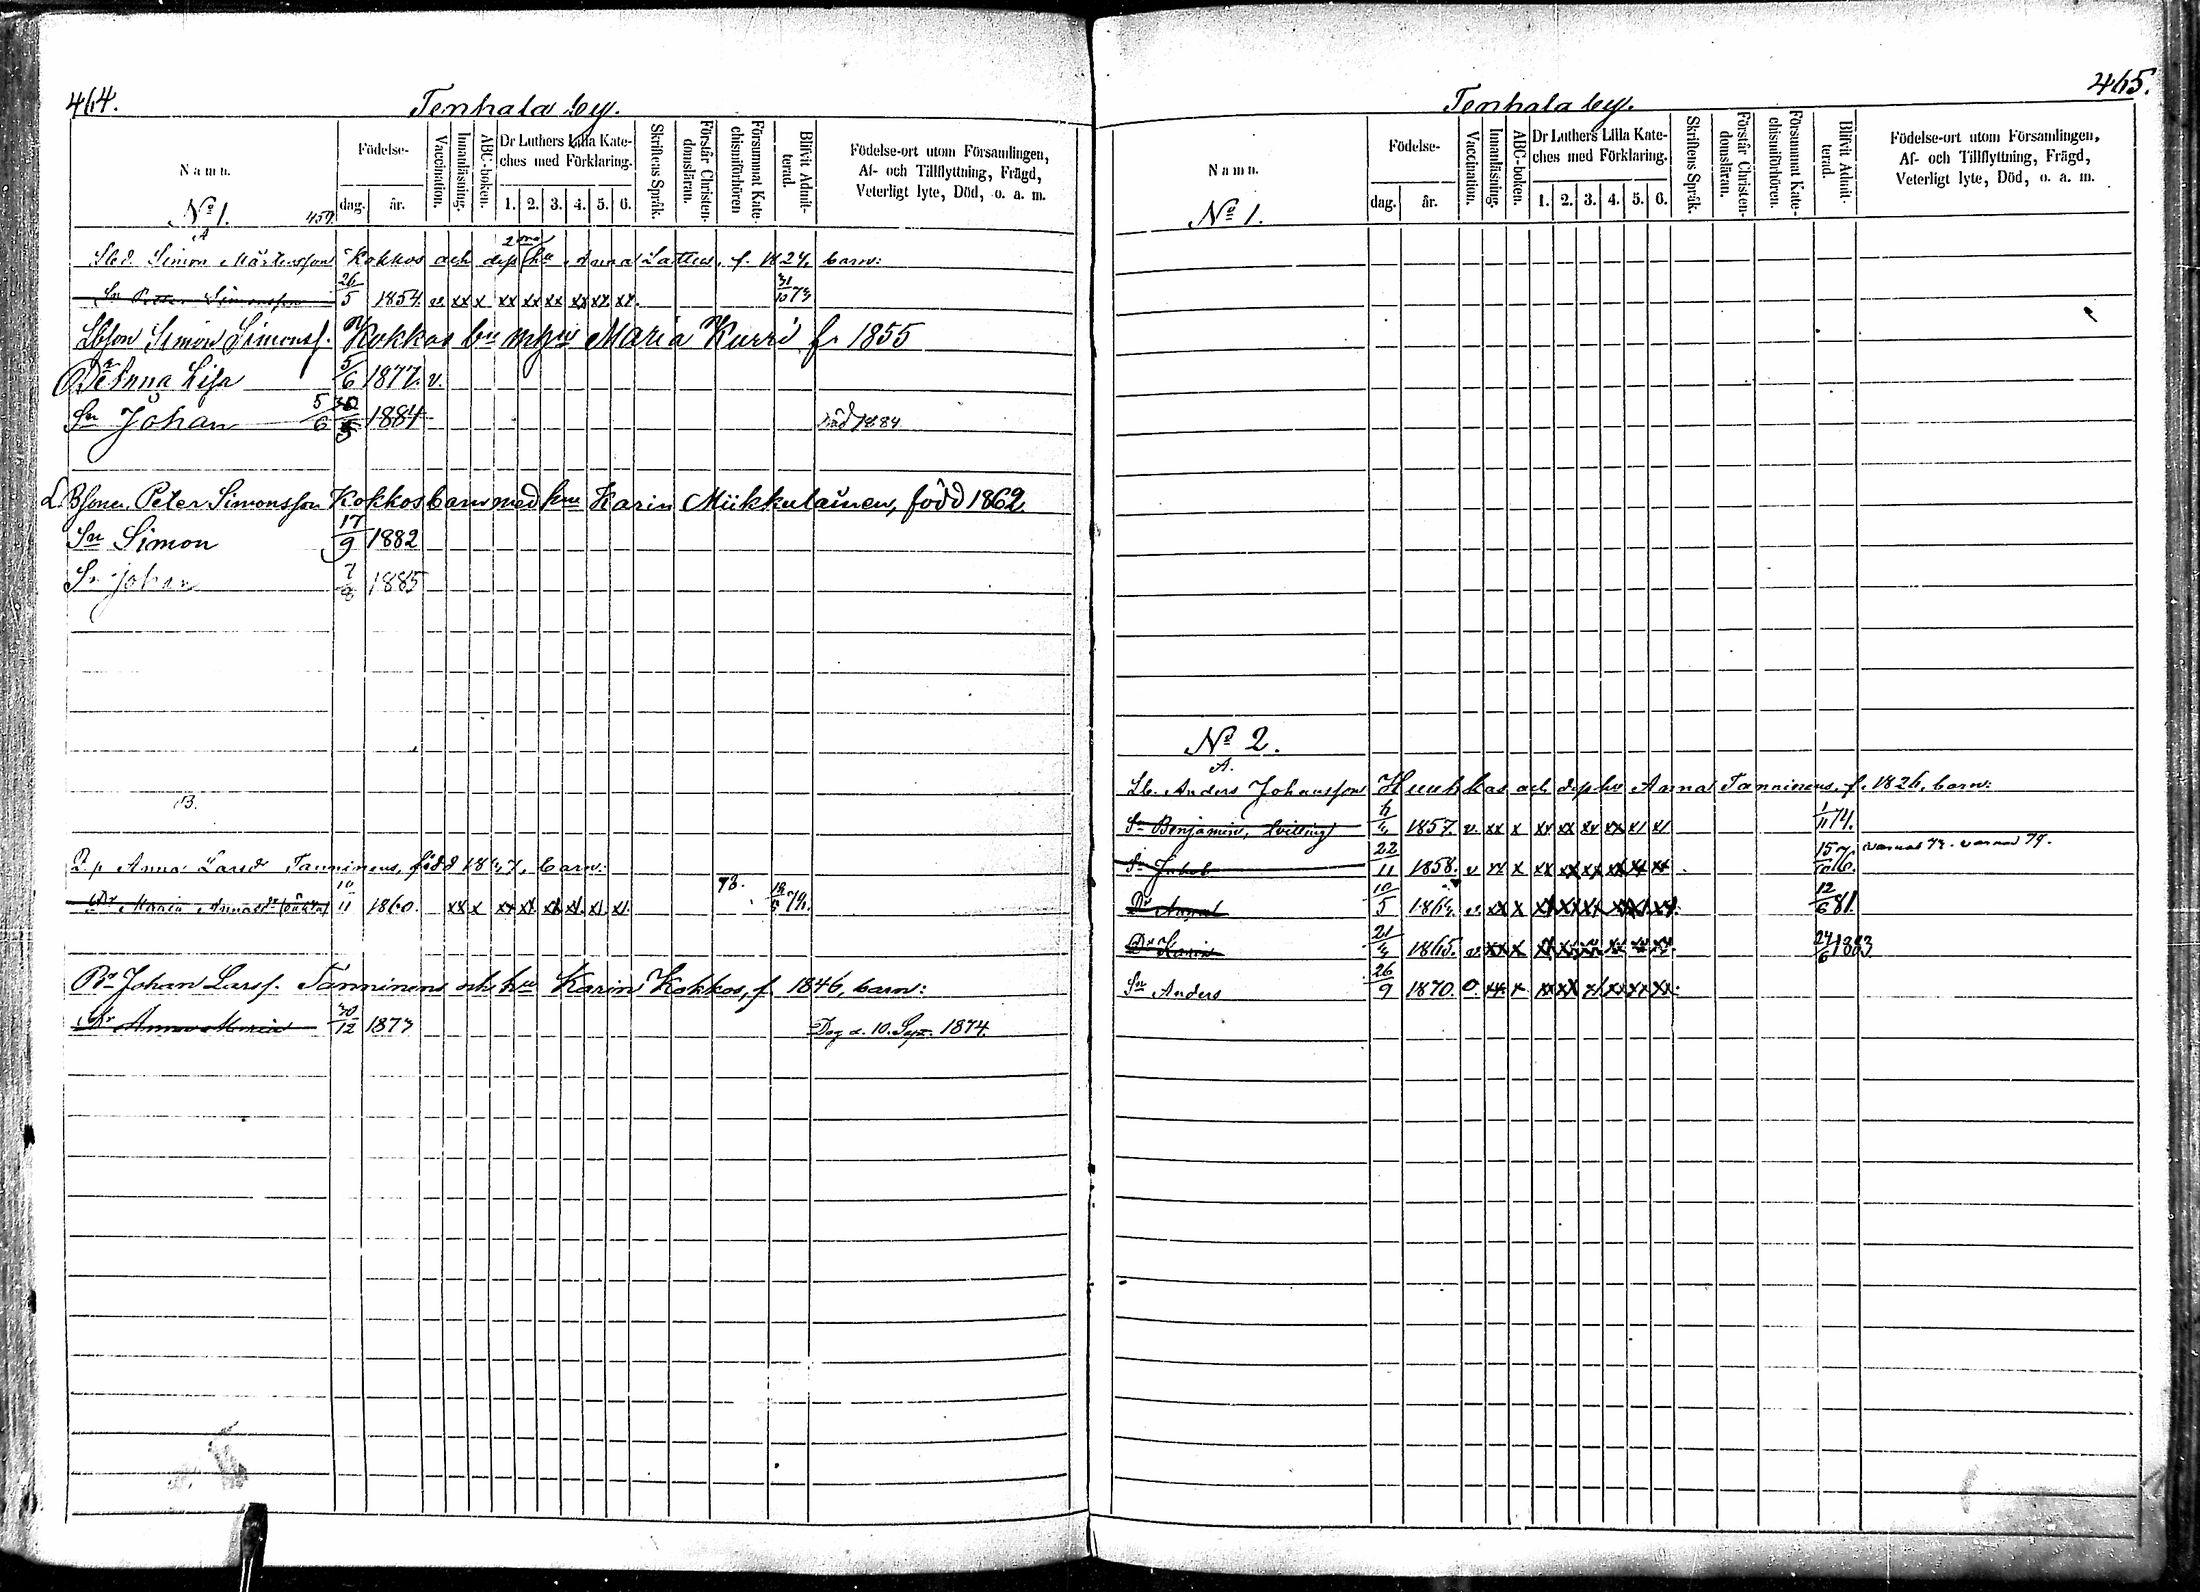 464.
Tenhala by.
Namn.
Födelse-
dag.
år.
Vaccination.
Innanläsning.
ABC-boken.
Dr Luthers Lilla Kate-
ches med Förklaring.
1. 2. 3. 4. 5. 6.
Skriftens Språk.
Förstår Christen-
domsläran.
Försummat Kate-
chismiförhören
Blifvit Admit-
terad.
Födelse-ort utom Församlingen,
Af- och Tillflyttning, Frägd,
Veterligt lyte, Död, o. a. m.
No 1.
A
Simon Mårtensson Kokkos och Anna f. 1824, barn:
Sn Peter Simonsson 26/5 1854 v. xx x xx xx xx xx xx xx. 31/10 73
Lbson Simon Simonss. Kokkos bn Maria Kurri f. 1855
Dr Anna Lisa 5/6 1877. v.
Sn Johan 5/6 1884 1884
Peter Simonsson Kokkos barn med hu Karin Miikkulainen, född 1862
Sn Simon 17/9 1882
Sn Johan 1885
B.
Anna Larsd Tanninens, född barn:
Dr Maria Annasdr 10/11 1860. xx x xx xx xx xx xx xx
Br Johan Larss. Tanninens och hu Karin Kokkos, f. 1846, barn:
Dr Anna Maria 30/12 1873 Dog d. 10. Sept. 1874.
465.
Tenhala by.
Namn.
Födelse-
dag.
år.
Vaccination.
Innanläsning.
ABC-boken.
Dr Luthers Lilla Kate-
ches med Förklaring.
1. 2. 3. 4. 5. 6.
Skriftens Språk.
Förstår Christen-
domsläran.
Försummat Kate-
chismiförhören.
Blifvit Admit-
terad.
Födelse-ort utom Församlingen,
Af- och Tillflyttning, Frägd,
Veterligt lyte, Död, o. a. m.
No 1.
No 2.
A.
Lb. Anders Johansson och Anna Tanninens, f. 1826, barn:
Sn Benjamin, tvilling 1857. v. xx x xx xx xx xx xx xx 1/11 74.
Sn Jakob 22/11 1858. v xx x xx xx xx xx xx xx
Dr Anna 10/5 v. xx x xx xx xx xx xx xx 12/6 81.
Dr Karin 1865. v. xx x xx xx xx xx xx xx 24/6 1883
Sn Anders 26/9 1870. v. xx x xx xx xx xx xx xx